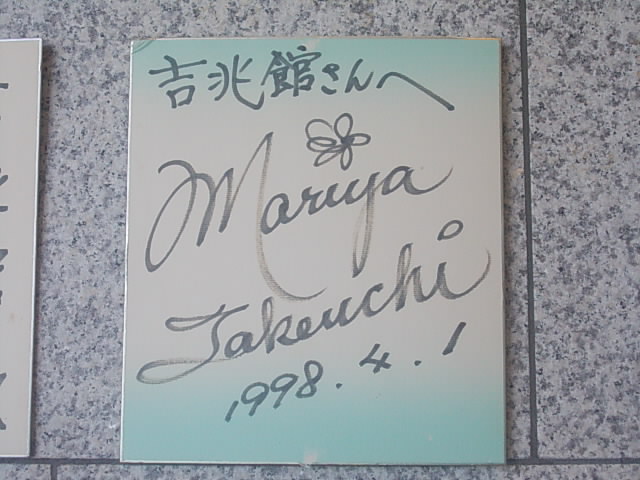 吉兆館さんへ
Mariya
Takeuchi
1998.4.1